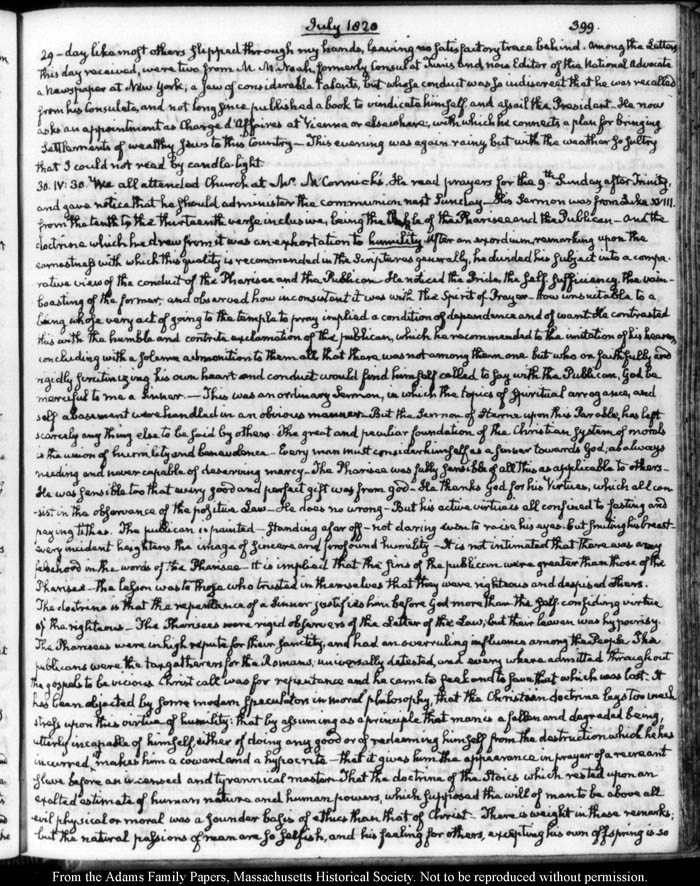 July 1820 399.
29 - day like most others slipped through my hands, leaving no satisfactory trace behind. Among the Letters
this day received, were two from M. M. Noah, formerly Consul at Tunis and now Editor of the National Advocate
a Newspaper at New York; a Jew of considerable talents, but whose conduct was so indiscreet that he was recalled
from his Consulate, and not long since published a book to vindicate himself and assail the President. He now
asks an appointment as Chargé d'Affaires at Vienna or elsewhere; with which he connects a plan for bringing
Settlements of wealthy Jews to this Country - This evening was again rainy but with the weather so sultry
that I could not read by candle-light.
30. IV: 30. We all attended Church at Mr. McCormick's. He read prayers for the 9th Sunday after Trinity,
and gave notice that he should administer the communion next Sunday - His Sermon was from Luke XVIII.
from the tenth to the thirteenth verse inclusive, being the Parable of the Pharisee and the Publican - and the
doctrine which he drew from it was an exhortation to humility. After an exordium, remarking upon the
earnestness with which this quality is recommended in the Scriptures generally, he divided his subject into a compa-
rative view of the conduct of the Pharisee and the Publican. He noticed the Pride, the Self-Sufficiency, the vain-
boasting of the former, and observed how inconsistent it was with the Spirit of Prayer - How unsuitable to a
being whose very act of going to the temple to pray implied a condition of dependence and of want. He contrasted
this with the humble and contrite exclamation of the publican, which he recommended to the imitation of his hearers,
concluding with a solemn admonition to them all that there was not among them one but who on faithfully and
rigidly scrutinizing his own heart and conduct would find himself called to say with the Publican, God be
merciful to me a Sinner. - This was an ordinary Sermon, in which the topics of spiritual arrogance, and
self abasement were handled in an obvious manner - But the Sermon of Sterne upon this Parable, has left
scarcely any thing else to be said by others. The great and peculiar foundation of the Christian System of morals
is the union of humility and benevolence - Every man must consider himself as a sinner towards God; as always
needing and never capable of deserving mercy - The Pharisee was fully sensible of all this as applicable to others -
He was sensible too that every good and perfect gift was from God - He thanks God for his Virtues, which all con-
sist in the observance of the positive Law - He does no wrong - But his active virtue is all confined to fasting and
paying tithes. The publican is painted - standing afar off - not daring even to raise his eyes - but smiting his breast -
every incident heightens the image of sincere and profound humility - It is not intimated that there was any
falsehood in the words of the Pharisee - it is implied that the sins of the publican were greater than those of the
Pharisee - the lesson was to those who trusted in themselves that they were righteous and despised others.
The doctrine is that the repentance of a sinner justifies him before God more than the self-confiding virtue
of the righteous - The Pharisees were rigid observers of the Letter of the Law; but their leaven was hypocrisy.
The Pharisees were in high repute for their sanctity, and had an overruling influence among the People. The
publicans were the taxgatherers for the Romans, universally detested, and every where admitted throughout
the gospels to be vicious. Christ call was for repentance and he came to seek and to save that which was lost. It
has been objected by some modern speculators in moral philosophy, that the Christian doctrine lays too much
stress upon this virtue of humility: that by assuming as a principle that man is a fallen and degraded being
utterly incapable of himself either of doing any good or of redeeming himself from the destruction which he has
incurred, makes him a coward and a hypocrite - that it gives him the appearance in prayer of a recreant
slave before an incensed and tyrannical master. That the doctrine of the Stoics which rested upon an
exalted estimate of human nature and human powers, which supposed the will of man to be above all
evil physical or moral was a sounder basis of ethics than that of Christ. There is weight in these remarks;
but the natural passions of man are so selfish, and his feeling for others, excepting his own offspring is so
From the Adams Family Papers, Massachusetts Historical Society. Not to be reproduced without permission.